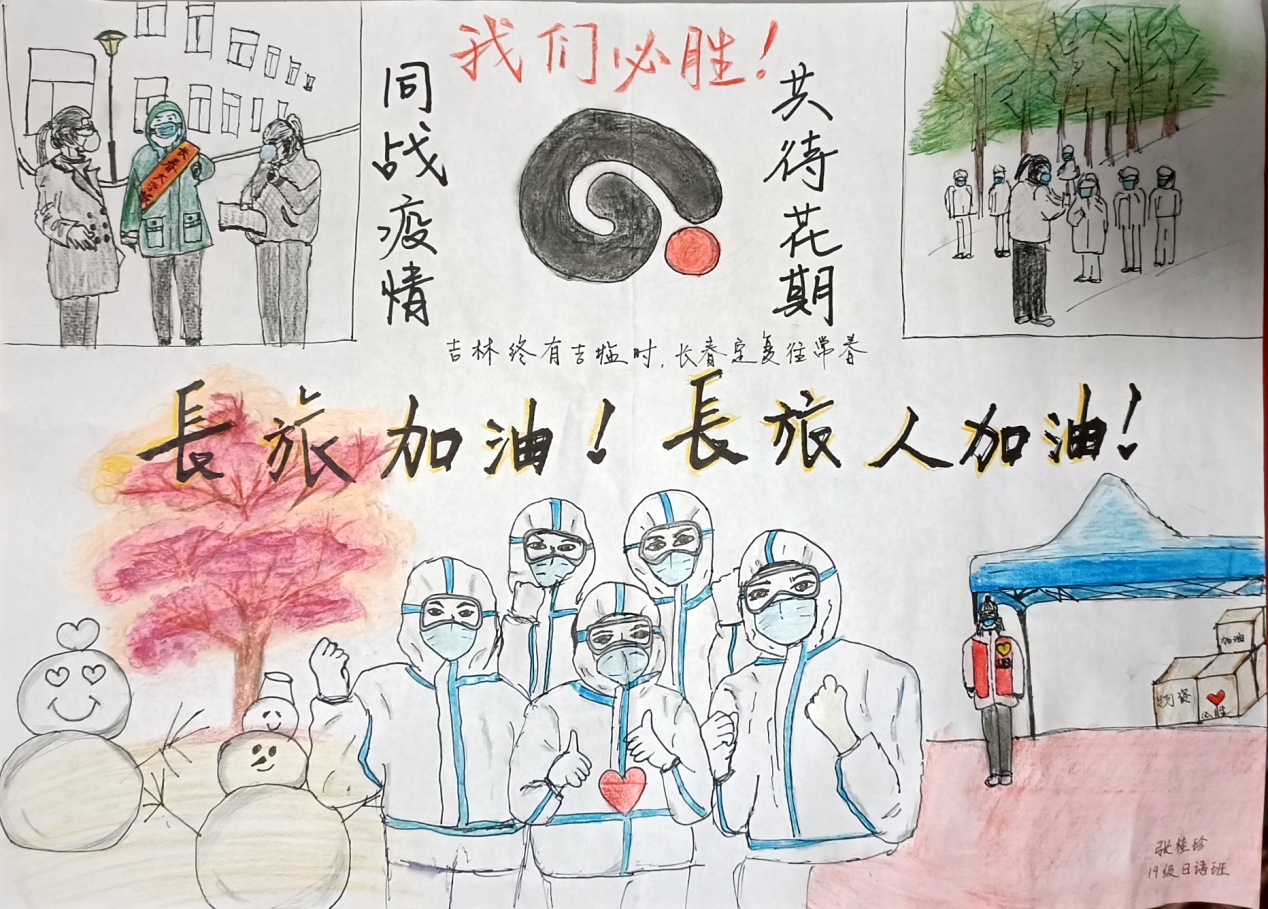 我们必胜！
同战疫情
共待花期
吉林终有吉临时，长春定复往常春
長旅加油！長旅人加油！
加油
物资
必胜
张桂珍
19级日语班